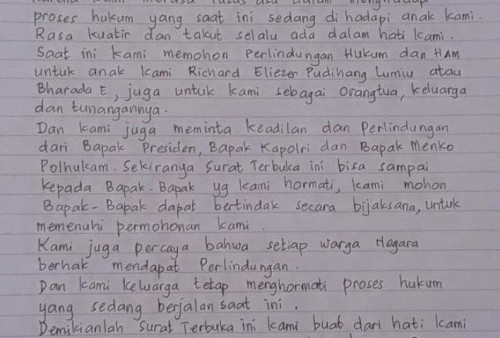 karena kami merasa putus asa dalam menghadapi
proses hukum yang saat ini sedang di hadapi anak kami.
Rasa kuatir dan takut selalu ada dalam hati kami.
Saat ini kami memohon Perlindungan Hukum dan HAM
untuk anak kami Richard Eliezer Pudihang Lumiu atau
Bharada E, juga untuk kami sebagai Orangtua, keluarga
dan tunangannya.
Dan kami juga meminta keadilan dan Perlindungan
dari Bapak Presiden, Bapak Kapolri dan Bapak Menko
Polhukam. Sekiranya Surat Terbuka ini bisa sampai
kepada Bapak-Bapak yg kami hormati, kami mohon
Bapak-Bapak dapat bertindak secara bijaksana, untuk
memenuhi permohonan kami.
Kami juga percaya bahwa setiap warga Negara
berhak mendapat Perlindungan.
Dan kami keluarga tetap menghormati proses hukum
yang sedang berjalan saat ini.
Demikianlah Surat Terbuka ini kami buat dari hati kami